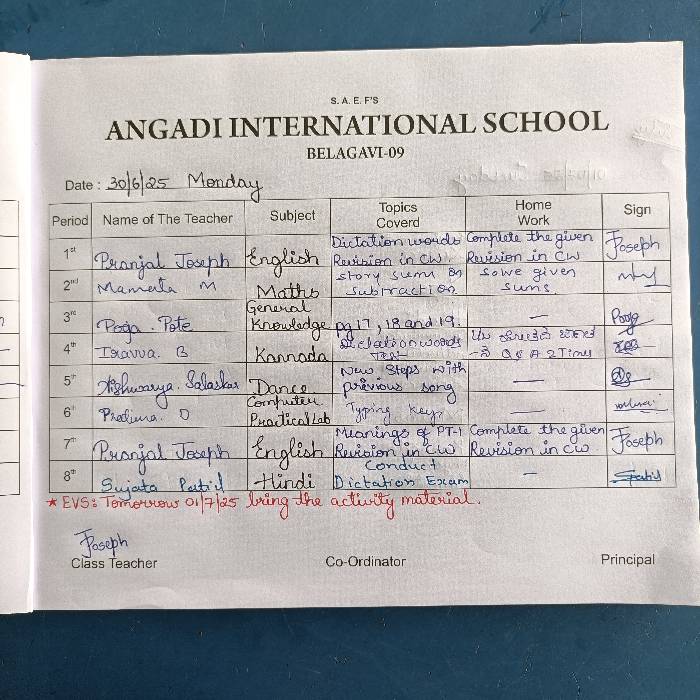 S. A. E. F'S
ANGADI INTERNATIONAL SCHOOL
BELAGAVI-09
Date : 30/6/25 Monday
Period Name of The Teacher Subject Topics Coverd Home Work Sign
1st Pranjal Joseph English Dictation words Revision in CW. Complete the given Revision in CW Joseph
2nd Mameeta M Maths story sums on subtraction solve given sums
3rd Pooja. Pote General Knowledge pg 17, 18 and 19. — Pooja
4th Iravva. B Kannada Dictation words Test - ನೇ Q & A 2 Times
5th Aishwarya. Salaskar Dance New Steps with previous song —
6th D Computer Practical Lab Typing key. —
7th Pranjal Joseph English Meanings of PT-1 Revision in CW Complete the given Revision in CW Joseph
8th Sujata Patil Hindi Conduct Dictation Exam — Spatil
★ EVS: Tomorrow 01/7/25 bring the activity material.
Joseph
Class Teacher Co-Ordinator Principal